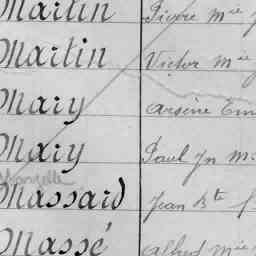 Martin Pierre Mie
Martin Victor Mie
Mary Arsène Em
Mary Paul Jn M
Massard Jean Bte f
Massé Alfred Mie